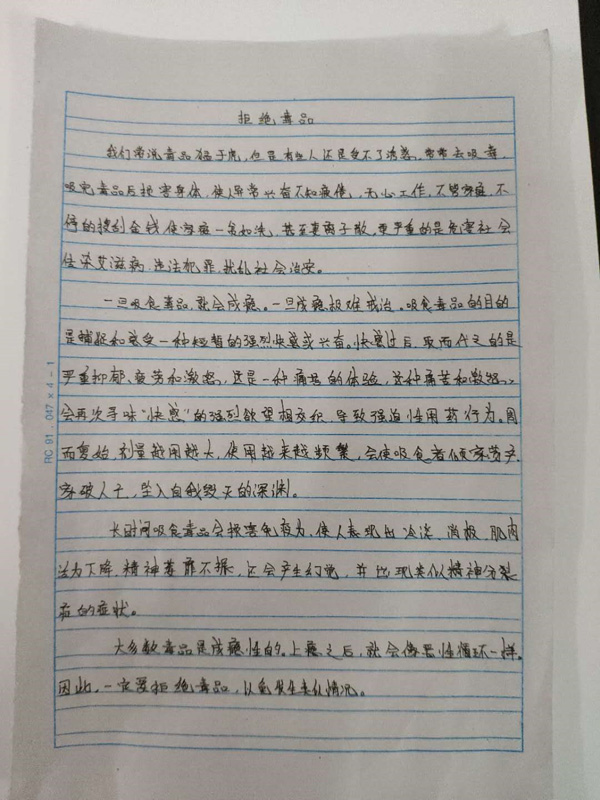 拒绝毒品
我们常说毒品猛于虎,但是有些人还是受不了诱惑,常常去吸毒,
吸完毒品后损害身体,使人异常兴奋不知疲倦,无心工作,不管家庭,不
停的搜刮金钱使家庭一贫如洗,甚至妻离子散,更严重的是危害社会
传染艾滋病,违法犯罪,扰乱社会治安。
一旦吸食毒品,就会成瘾。一旦成瘾极难戒治。吸食毒品的目的
是捕捉和感受一种短暂的强烈快感或兴奋。快感过后,取而代之的是
严重抑郁、疲劳和激怒,这是一种痛苦的体验,这种痛苦和激怒、
会再次寻味“快感”的强烈欲望相交织,导致强迫性用药行为。周
而复始,剂量越用越大,使用越来越频繁,会使吸食者倾家荡产
家破人亡,坠入自我毁灭的深渊。
长时间吸食毒品会损害免疫力,使人表现出冷淡,消极,肌肉
活力下降,精神萎靡不振,还会产生幻觉,并出现类似精神分裂
症的症状。
大多数毒品是成瘾性的。上瘾之后,就会像恶性循环一样。
因此,一定要拒绝毒品,以免发生类似情况。
RC 91,017×4-1